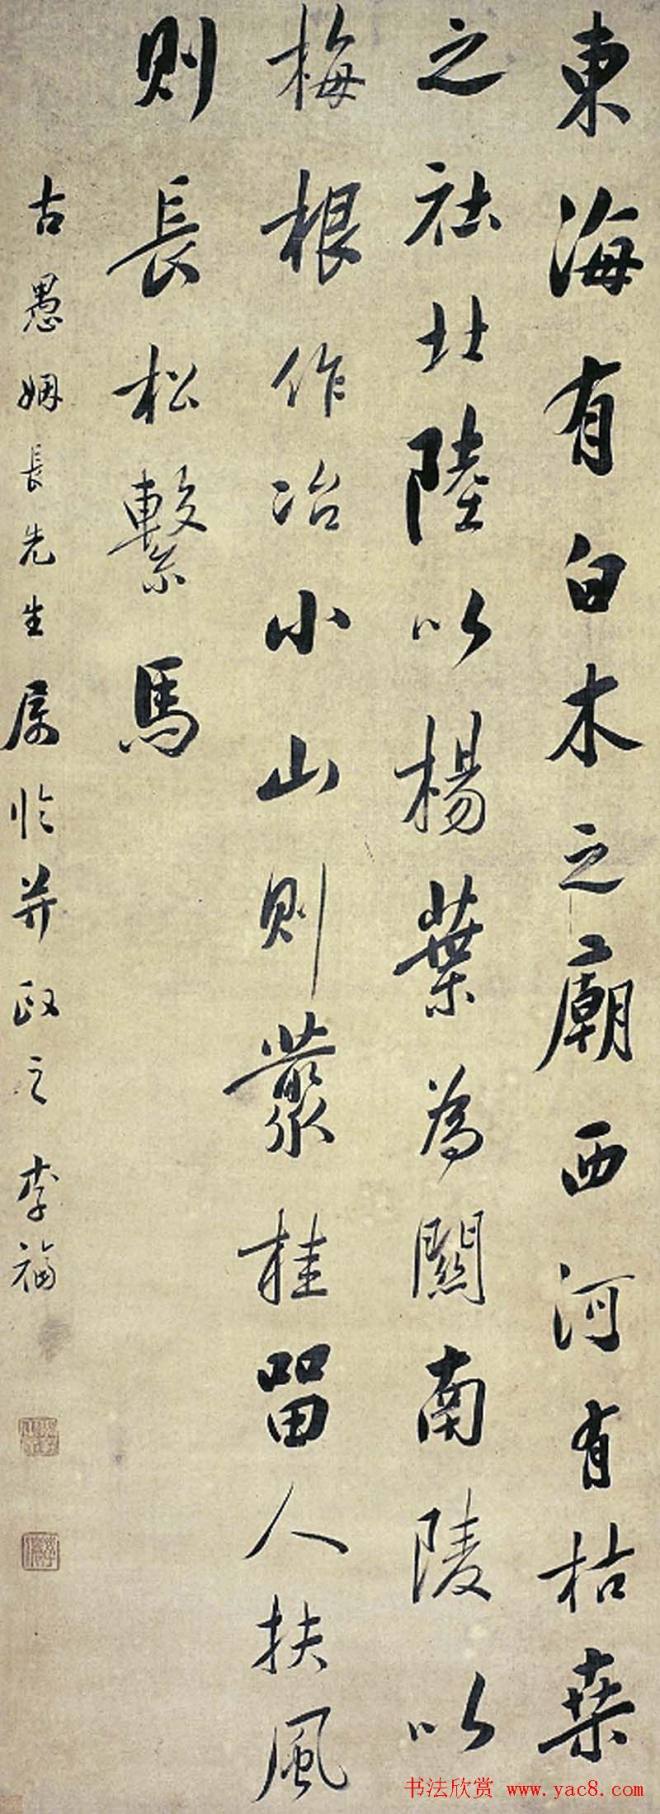 東海有白木之廟西河有枯桒
之社北陸以楊葉為關南陵以
梅根作冶小山則叢桂留人扶風
則長松繫馬
古愚姻長先生属臨并政之李福
书法欣赏 www.yac8.com